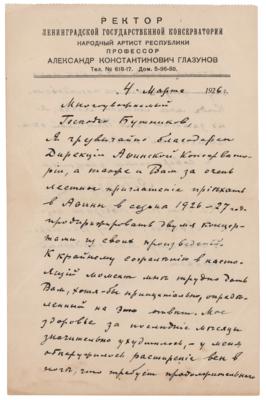 РЕКТОР
ЛЕНИНГРАДСКОЙ ГОСУДАРСТВЕННОЙ КОНСЕРВАТОРИИ
НАРОДНЫЙ АРТИСТ РЕСПУБЛИКИ
ПРОФЕССОР
АЛЕКСАНДР КОНСТАНТИНОВИЧ ГЛАЗУНОВ
Тел. № 618-17. Дом. 5-96-80.
4 Марта 1926 г.
Многоуважаемый
Господин Бутников,
Я чрезвычайно благодарен
Дирекции Афинской Консервато-
рии, а также и Вам за очень
лестное приглашение приехать
в Афины в сезоне 1926–27 году
продирижировать двумя концер-
тами из своих произведений.
К крайнему сожалению в насто-
ящий момент мне трудно дать
Вам, хотя-бы принципиально, определ-
енный на это ответ. Мое
здоровье за последние месяцы
значительно ухудшилось, – у меня
обнаружилось расширение вен в
ноге, что требует продолжительного